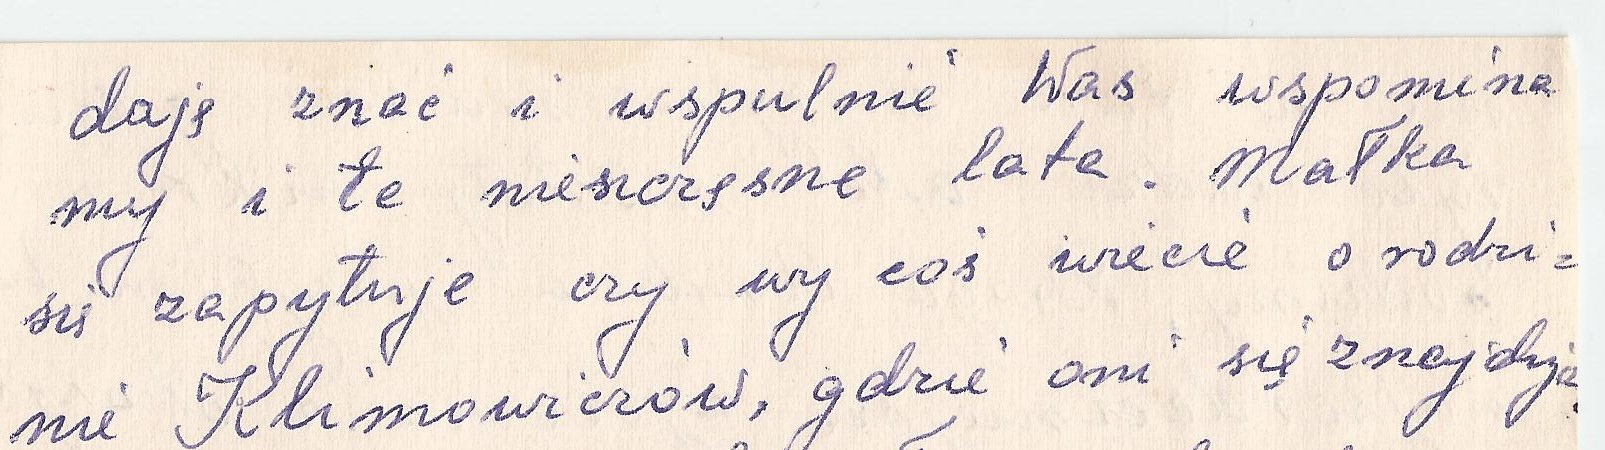 daję znać i wspulnie Was wspomina
my i te nieszczęsne lata. Matka
się zapytuje czy wy coś wiecie o rodzi=
nie Klimowiczów, gdzie oni się znajdyją